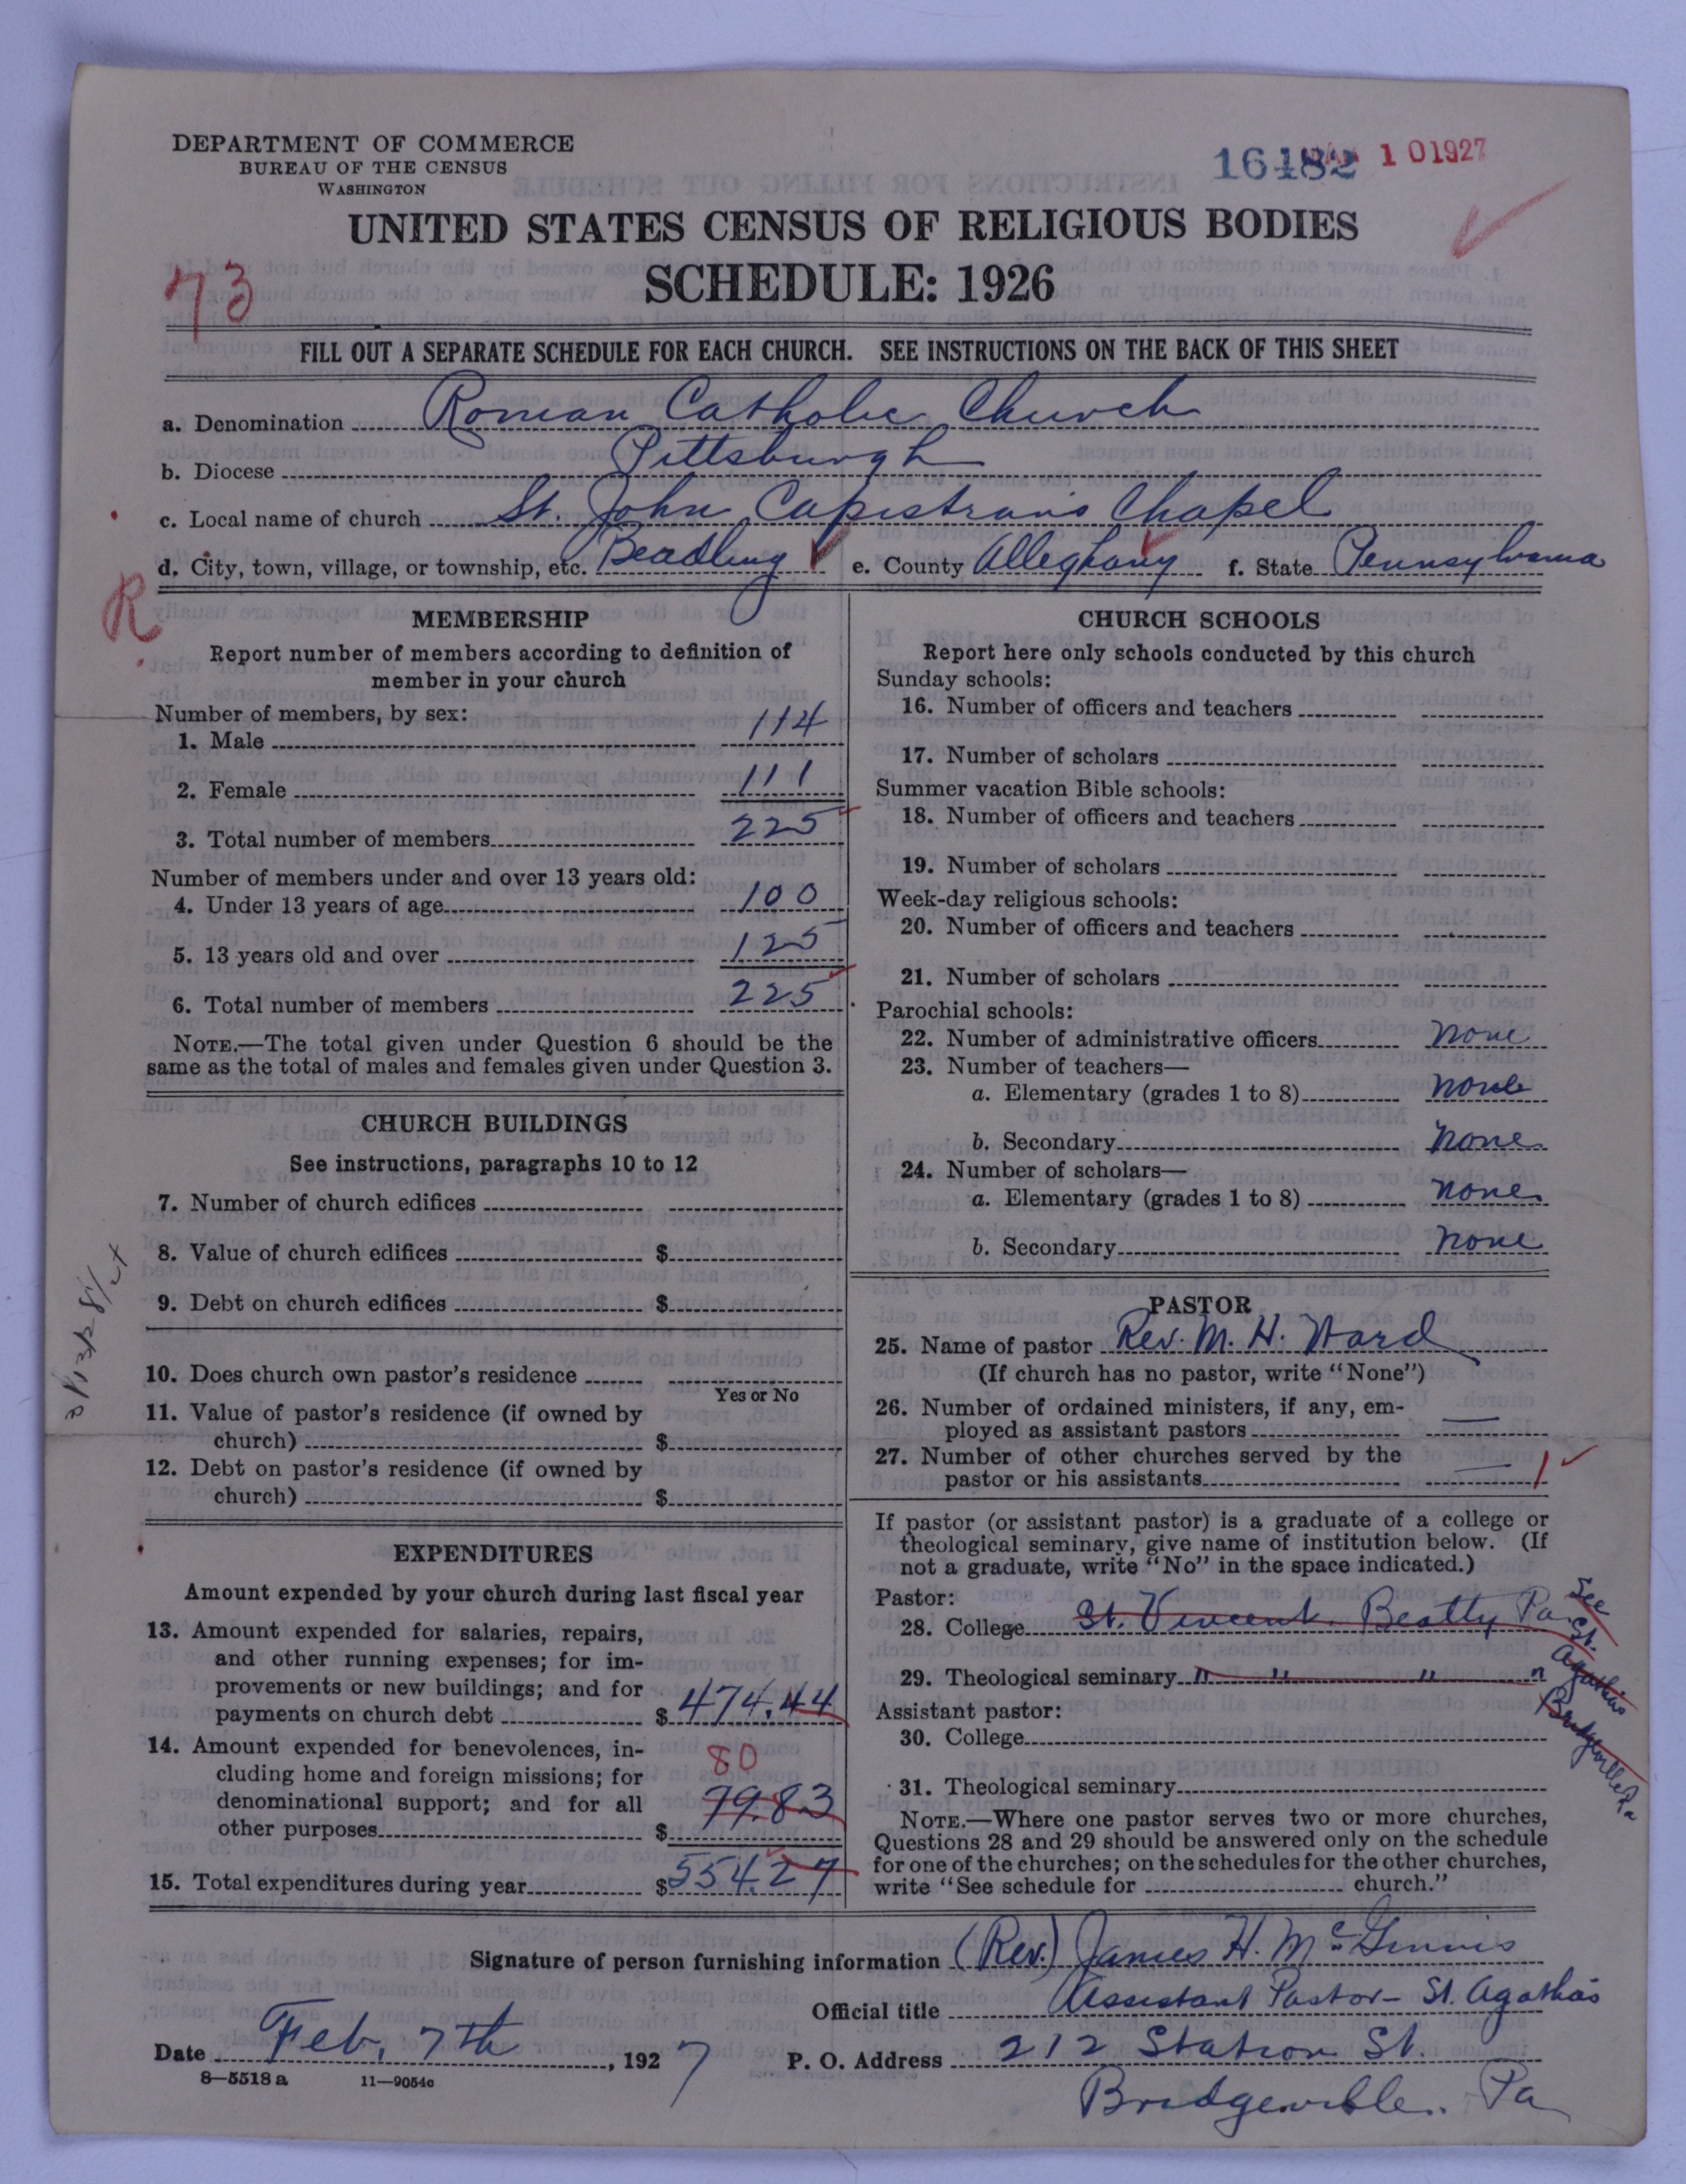 DEPARTMENT OF COMMERCE
BUREAU OF THE CENSUS
WASHINGTON
16482 1 01927
UNITED STATES CENSUS OF RELIGIOUS BODIES
SCHEDULE: 1926
73
FILL OUT A SEPARATE SCHEDULE FOR EACH CHURCH. SEE INSTRUCTIONS ON THE BACK OF THIS SHEET
a. Denomination Roman Catholic Church
b. Diocese Pittsburgh
c. Local name of church St. John Capistrans Chapel
d. City, town, village, or township, etc. Beadling e. County Alleghany f. State Pennsylvania
R
MEMBERSHIP
Report number of members according to definition of
member in your church
Number of members, by sex:
1. Male 114
2. Female 111
3. Total number of members 225
Number of members under and over 13 years old:
4. Under 13 years of age 100
5. 13 years old and over 125
6. Total number of members 225
NOTE.—The total given under Question 6 should be the
same as the total of males and females given under Question 3.
CHURCH BUILDINGS
See instructions, paragraphs 10 to 12
7. Number of church edifices
8. Value of church edifices $
9. Debt on church edifices $
10. Does church own pastor's residence
Yes or No
11. Value of pastor's residence (if owned by
church) $
12. Debt on pastor's residence (if owned by
church) $
EXPENDITURES
Amount expended by your church during last fiscal year
13. Amount expended for salaries, repairs,
and other running expenses; for im-
provements or new buildings; and for
payments on church debt $ 474.44
14. Amount expended for benevolences, in-
80
cluding home and foreign missions; for
denominational support; and for all
other purposes $ 79.83
15. Total expenditures during year $ 554.27
CHURCH SCHOOLS
Report here only schools conducted by this church
Sunday schools:
16. Number of officers and teachers
17. Number of scholars
Summer vacation Bible schools:
18. Number of officers and teachers
19. Number of scholars
Week-day religious schools:
20. Number of officers and teachers
21. Number of scholars
Parochial schools:
22. Number of administrative officers none
23. Number of teachers—
a. Elementary (grades 1 to 8) none
b. Secondary none
24. Number of scholars—
a. Elementary (grades 1 to 8) none
b. Secondary none
PASTOR
25. Name of pastor Rev. M. H. Ward
(If church has no pastor, write "None")
26. Number of ordained ministers, if any, em-
ployed as assistant pastors —
27. Number of other churches served by the
pastor or his assistants — 1
If pastor (or assistant pastor) is a graduate of a college or
theological seminary, give name of institution below. (If
not a graduate, write "No" in the space indicated.)
Pastor:
28. College St. Vincent. Beatty Pa
29. Theological seminary " " " "
See St. Agathas Bridgeville Pa
Assistant pastor:
30. College
31. Theological seminary
NOTE.—Where one pastor serves two or more churches,
Questions 28 and 29 should be answered only on the schedule
for one of the churches; on the schedules for the other churches,
write "See schedule for church."
Signature of person furnishing information (Rev.) James H. McGinnis
Official title Assistant Pastor - St. Agatha's
Date Feb. 7th, 1927 P. O. Address 212 Station St.
Bridgeville. Pa
8—5518 a 11—9054c